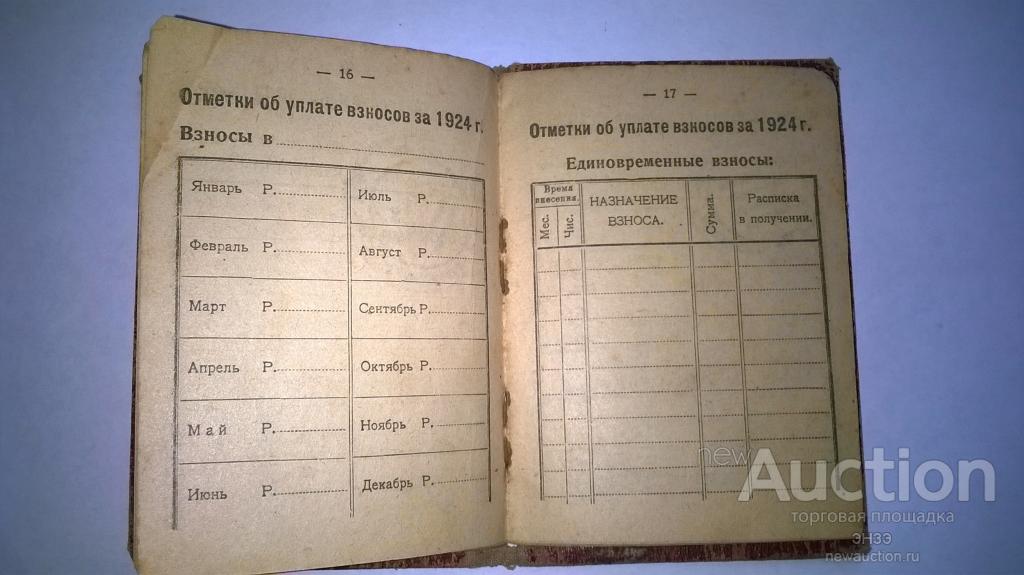 — 16 —
Отметки об уплате взносов за 1924 г.
Взносы в
Январь Р.
Февраль Р.
Март Р.
Апрель Р.
Май Р.
Июнь Р.
Июль Р.
Август Р.
Сентябрь Р.
Октябрь Р.
Ноябрь Р.
Декабрь Р.
— 17 —
Отметки об уплате взносов за 1924 г.
Единовременные взносы:
Время
внесения.
Мес.
Чис.
НАЗНАЧЕНИЕ
ВЗНОСА.
Сумма.
Расписка
в получении.
newAuction
торговая площадка
ЭНЗЭ
newauction.ru